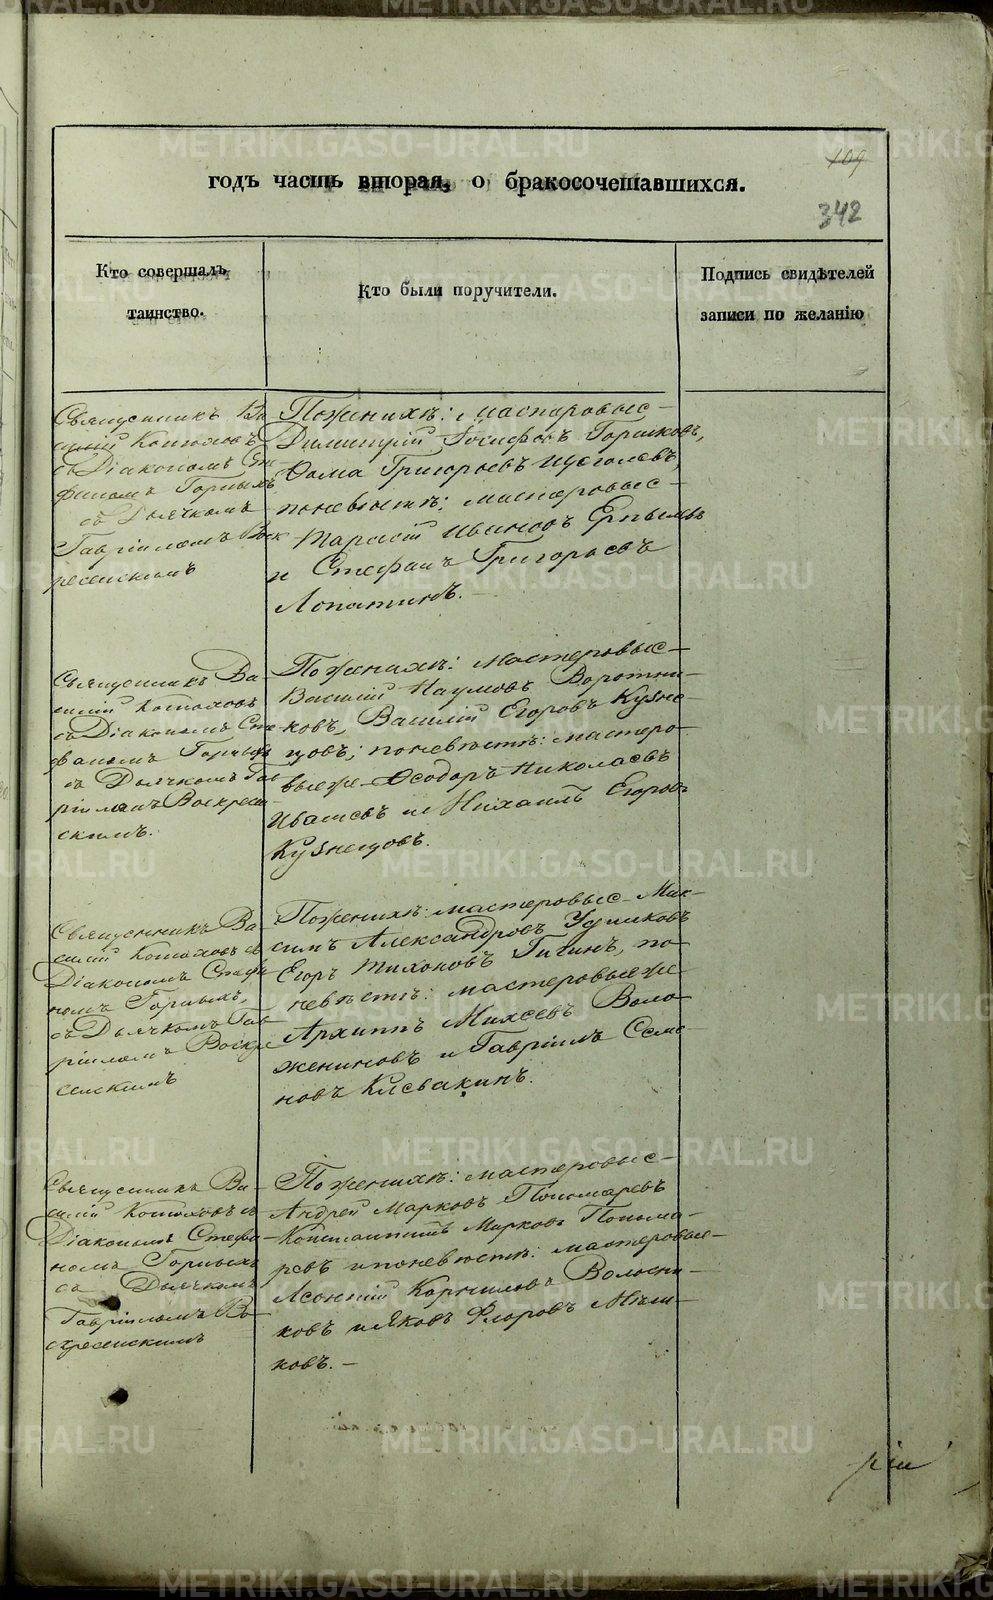 109
годъ часть вторая, о бракосочетавшихся.
342
Кто совершалъ
таинство.
Кто были поручители.
Подпись свидѣтелей
записи по желанію
Священникъ Ва
силій Конюховъ
съ Діакономъ Сте
фаномъ Горныхъ
съ Дьячкомъ
Гавріиломъ Воск
ресенскимъ
Поженихѣ: мастеровые –
Димитрій Іосифовъ Горшковъ,
Фома Григорьевъ Щеголевъ,
поневѣстѣ: мастеровые –
Тарасій Ивановъ
и Стефанъ Григорьевъ
Лопатинъ. –
Священникъ Ва
силій Конюховъ
съ Діакономъ Сте
фаномъ Горныхъ
съ Дьячкомъ Гав
ріиломъ Воскресен
скимъ.
Поженихѣ: мастеровые –
Василій Наумовъ Воротни
ковъ, Василій Егоровъ Кузне
цовъ; поневѣстѣ: мастеро
выеже Ѳеодоръ Николаевъ
Ивашевъ и Михаилъ Егоровъ
Кузнецовъ.
Священникъ Ва
силій Конюховъ съ
Діакономъ Стефа
номъ Горныхъ,
съ Дьячкомъ Гав
ріиломъ Воскре
сенскимъ
Поженихѣ: мастеровые Мак–
симъ Александровъ
Егоръ Тихоновъ по
невѣстѣ: мастеровыеже
Архиппъ Михеевъ Воло
жениновъ и Гавріилъ Семе
новъ Клевакинъ.
Священникъ Ва–
силій Конюховъ съ
Діакономъ Стефа–
номъ Горныхъ
съ Дьячкомъ
Гавріиломъ Во
скресенскимъ
Поженихѣ: мастеровые –
Андрей Марковъ Пономаревъ
Константинъ Марковъ Понома–
ревъ и поневѣстѣ: мастеровые –
Леонтій Корниловъ Волосни
ковъ и Яковъ Флоровъ Мѣльни
ковъ. –
METRIKI.GASO-URAL.RU